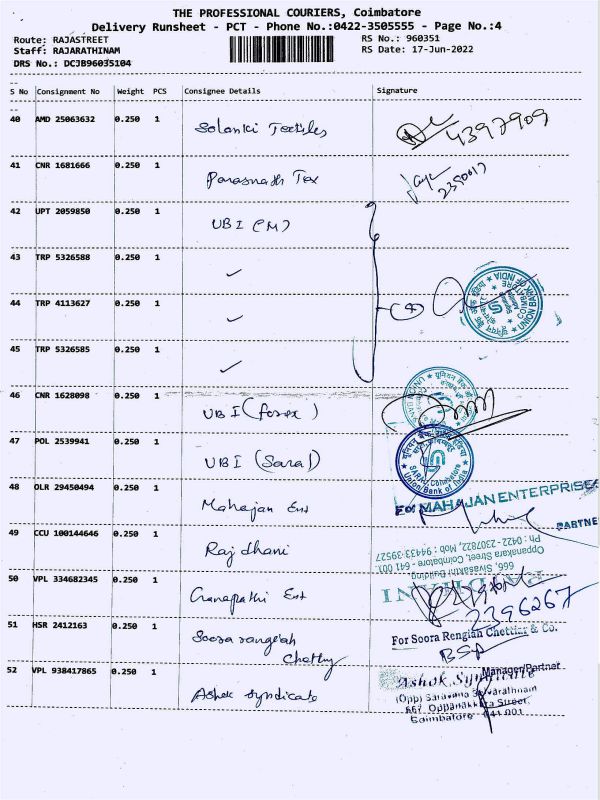 THE PROFESSIONAL COURIERS, Coimbatore
Delivery Runsheet - PCT - Phone No.:0422-3505555 - Page No.:4
Route: RAJASTREET
RS No.: 960351
Staff: RAJARATHINAM
RS Date: 17-Jun-2022
DRS No.: DCJB96035104
S No Consignment No Weight PCS Consignee Details Signature
40 AMD 25063632 0.250 1 Solanki Textiles 4397909
41 CNR 1681666 0.250 1 Parasnath Tex 2390017
42 UPT 2059850 0.250 1 UBI (M)
43 TRP 5326588 0.250 1 ✓
44 TRP 4113627 0.250 1 ✓ (4)
UNION BANK OF INDIA
COIMBATORE
45 TRP 5326585 0.250 1 ✓
46 CNR 1628098 0.250 1 UBI (forex)
47 POL 2539941 0.250 1 UBI (Saral)
Union Bank of India
48 OLR 29450494 0.250 1 Mahajan Ent
For MAHAJAN ENTERPRISE
PARTNE
49 CCU 100144646 0.250 1 Rajdhani
RAJDHANI
666, Sivasakthi Building
Oppanakara Street, Coimbatore - 641 001.
Ph : 0422 - 2307822, Mob : 94433-39527
50 VPL 334682345 0.250 1 Ganapathi Ent 2396267
51 HSR 2412163 0.250 1 Soora rangaiah Chetty
For Soora Rengiah Chettiar & Co.
Manager/Partner
52 VPL 938417865 0.250 1 Ashok Syndicate
Ashok Syndicate
(Opp) Saravana Selvarathnam
667, Oppanakkara Street,
Coimbatore - 641 001